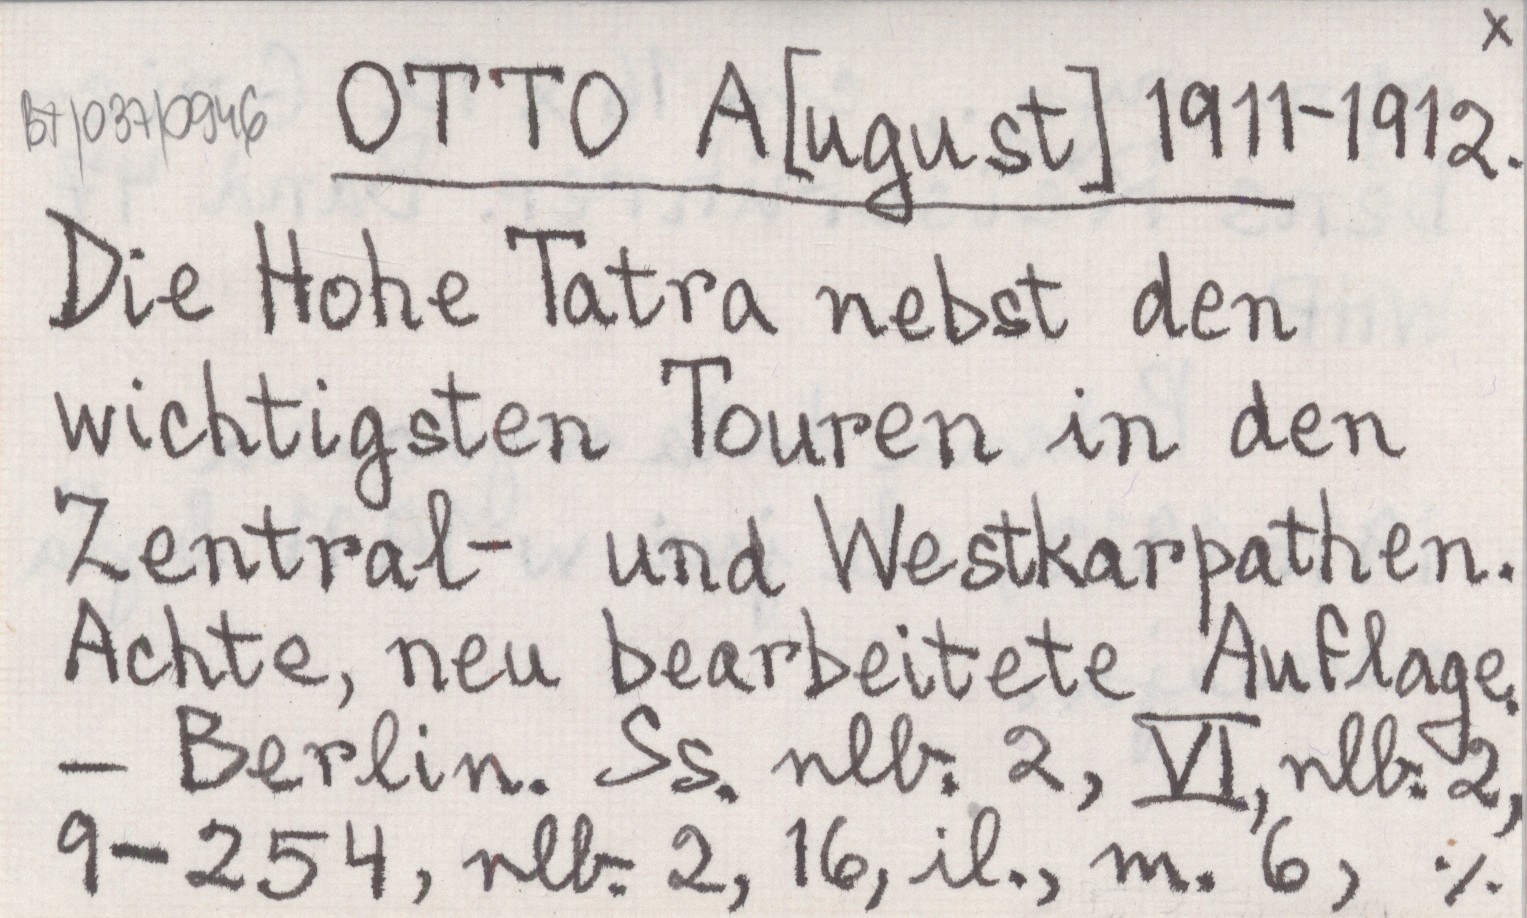 x
BT/037/0946 OTTO A[ugust] 1911-1912.
Die Hohe Tatra nebst den
wichtigsten Touren in den
Zentral- und Westkarpathen.
Achte, neu bearbeitete Auflage.
– Berlin. Ss. nlb. 2, VI, nlb. 2,
9-254, nlb. 2, 16, il., m. 6, ./.